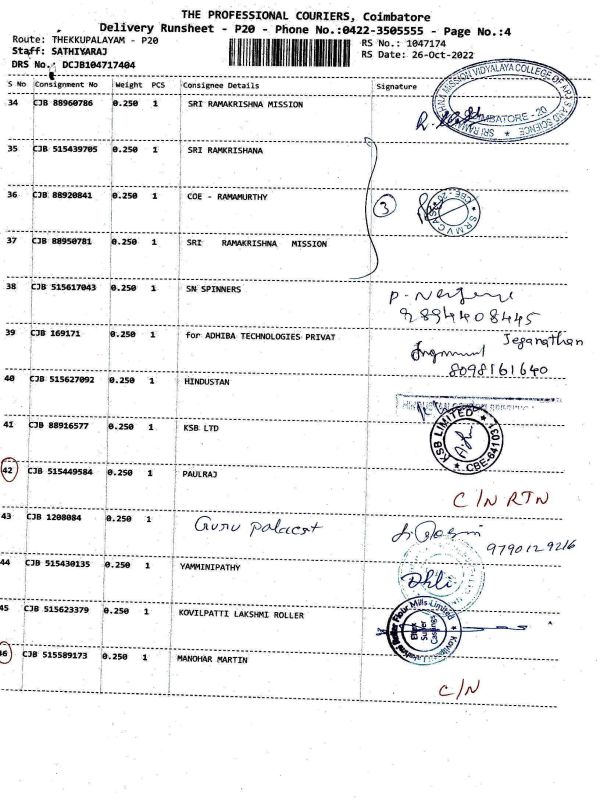 THE PROFESSIONAL COURIERS, Coimbatore
Delivery Runsheet - P20 - Phone No.:0422-3505555 - Page No.:4
Route: THEKKUPALAYAM - P20
RS No.: 1047174
Staff: SATHIYARAJ
RS Date: 26-Oct-2022
DRS No.: DCJB104717404
S No Consignment No Weight PCS Consignee Details Signature
34 CJB 88960786 0.250 1 SRI RAMAKRISHNA MISSION
SRI RAMAKRISHNA MISSION VIDYALAYA COLLEGE OF ARTS AND SCIENCE
COIMBATORE - 20
35 CJB 515439705 0.250 1 SRI RAMKRISHANA
36 CJB 88920841 0.250 1 COE - RAMAMURTHY 3
S.R.M.V CAS CBE - 20
37 CJB 88950781 0.250 1 SRI RAMAKRISHNA MISSION
38 CJB 515617043 0.250 1 SN SPINNERS
9894408445
39 CJB 169171 0.250 1 for ADHIBA TECHNOLOGIES PRIVAT
Jeganathan
8098161640
40 CJB 515627092 0.250 1 HINDUSTAN
41 CJB 88916577 0.250 1 KSB LTD
KSB LIMITED
CBE-641031
42 CJB 515449584 0.250 1 PAULRAJ
C/N RTN
43 CJB 1208084 0.250 1 Guru Palacat
9790129216
44 CJB 515430135 0.250 1 YAMMINIPATHY
45 CJB 515623379 0.250 1 KOVILPATTI LAKSHMI ROLLER
Kovilpatti Lakshmi Roller Flour Mills Limited
46 CJB 515589173 0.250 1 MANOHAR MARTIN
C/N